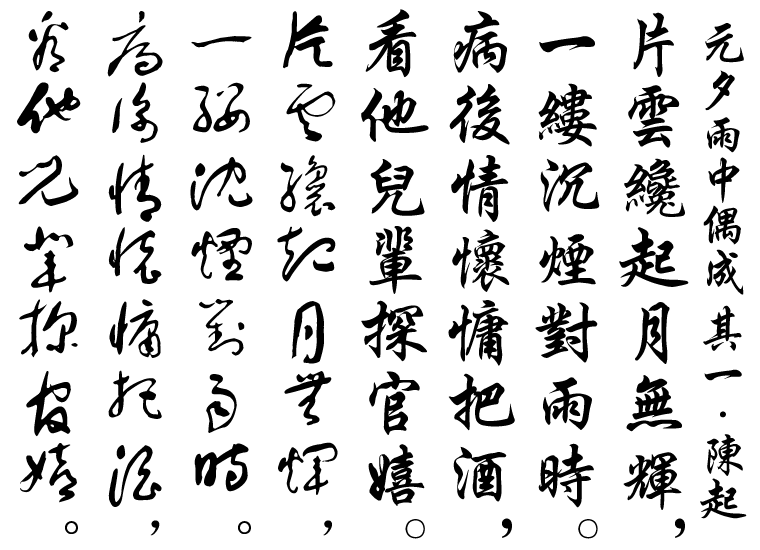 元夕雨中偶成 其一·陳起
片雲纔起月無輝，
一縷沉煙對雨時。
病後情懷慵把酒，
看他兒輩探官嬉。
片雲纔起月無輝，
一縷沈煙對雨時。
病後情懷慵把酒，
看他兒輩探官嬉。